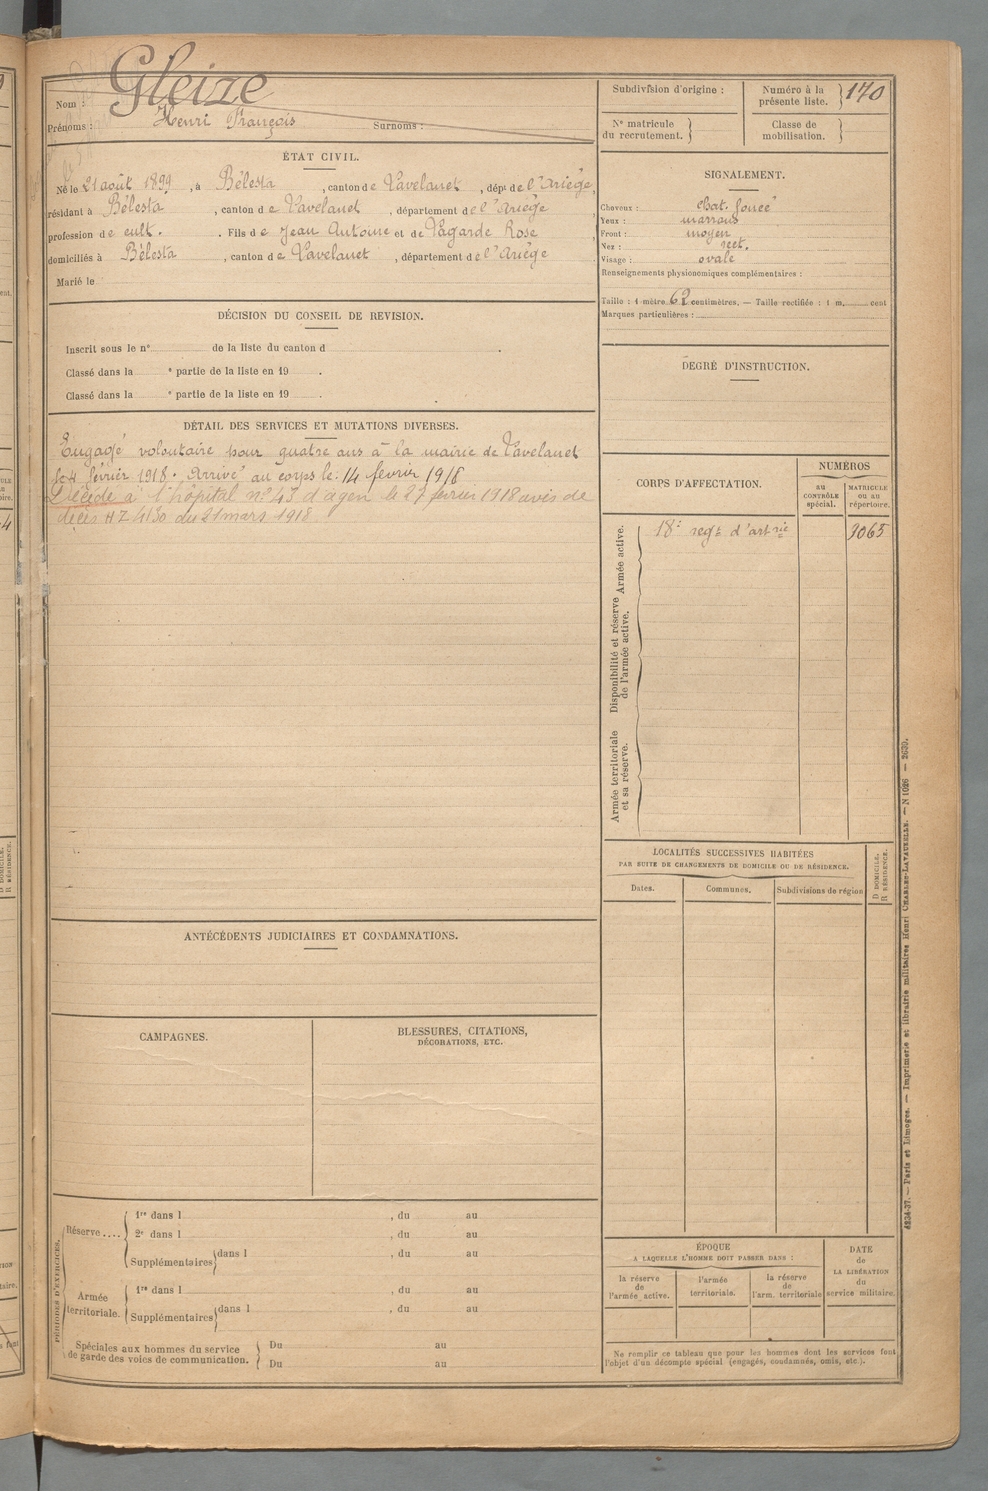 Nom : Gleize
Prénoms : Henri François Surnoms :
ÉTAT CIVIL.
Né le 21 août 1899, à Bélesta, canton de Lavelanet, dépt de l'Ariège,
résidant à Bélesta, canton de Lavelanet, département de l'Ariège
profession de cult. . Fils de Jean Antoine et de Lagarde Rose
domiciliés à Bélesta, canton de Lavelanet, département de l'Ariège
Marié le
DÉCISION DU CONSEIL DE REVISION.
Inscrit sous le n° de la liste du canton d .
Classé dans la e partie de la liste en 19 .
Classé dans la e partie de la liste en 19 .
DÉTAIL DES SERVICES ET MUTATIONS DIVERSES.
Engagé volontaire pour quatre ans à la mairie de Lavelanet
le 4 février 1918. Arrivé au corps le 14 février 1918
Décédé à l'hôpital n° 43 d'agen le 27 février 1918 avis de
décès HZ 4130 du 21 mars 1918
ANTÉCÉDENTS JUDICIAIRES ET CONDAMNATIONS.
CAMPAGNES.
BLESSURES, CITATIONS,
DÉCORATIONS, ETC.
PÉRIODES D'EXERCICES.
Réserve ....
1re dans l , du au
2e dans l , du au
Supplémentaires dans l , du au
Armée
territoriale.
1re dans l , du au
Supplémentaires dans l , du au
Spéciales aux hommes du service
de garde des voies de communication.
Du au
Du au
Subdivision d'origine :
Numéro à la
présente liste. 170
N° matricule
du recrutement.
Classe de
mobilisation.
SIGNALEMENT.
Cheveux : Chat. foncé
Yeux : marrons
Front : moyen
Nez : rect.
Visage : ovale
Renseignements physionomiques complémentaires :
Taille : 1 mètre 62 centimètres. — Taille rectifiée : 1 m. cent
Marques particulières :
DEGRÉ D'INSTRUCTION.
CORPS D'AFFECTATION.
NUMÉROS
au
CONTRÔLE
spécial.
MATRICULE
ou au
répertoire.
Armée active.
18e regt d'artrie 3065
Disponibilité et réserve
de l'armée active.
Armée territoriale
et sa réserve.
LOCALITÉS SUCCESSIVES HABITÉES
PAR SUITE DE CHANGEMENTS DE DOMICILE OU DE RÉSIDENCE.
D DOMICILE.
R RÉSIDENCE.
Dates.
Communes.
Subdivisions de région
ÉPOQUE
A LAQUELLE L'HOMME DOIT PASSER DANS :
la réserve
de
l'armée active.
l'armée
territoriale.
la réserve
de
l'arm. territoriale
DATE
de
LA LIBÉRATION
du
service militaire.
Ne remplir ce tableau que pour les hommes dont les services font
l'objet d'un décompte spécial (engagés, condamnés, omis, etc.).
4234-37. — Paris et Limoges. — Imprimerie et librairie militaires Henri CHARLES-LAVAUZELLE. — N 1026 —